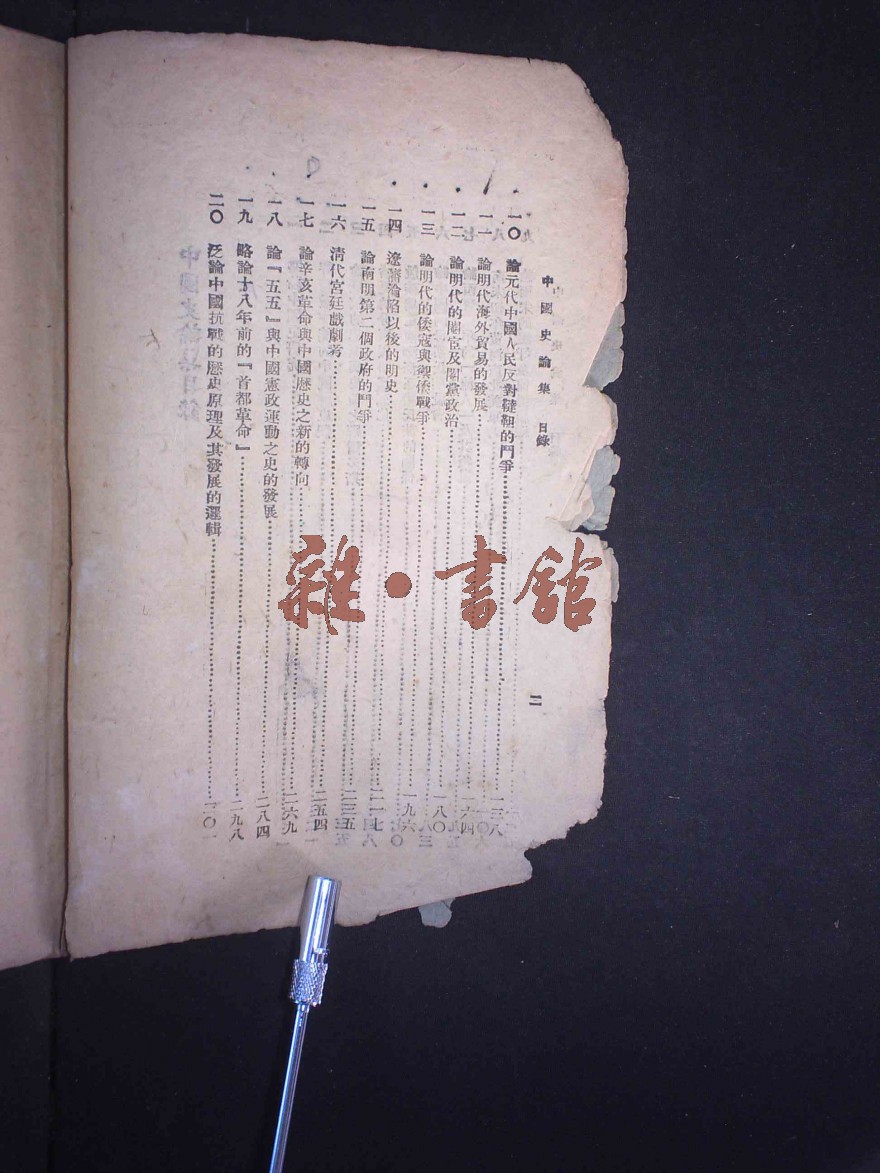 中國史論集　目錄
二
一〇　論元代中國人民反對韃靼的鬥爭……一三八
一一　論明代海外貿易的發展……一六四
一二　論明代的閹宦及閹黨政治……一八〇
一三　論明代的倭寇與禦倭戰爭……一九六
一四　遼瀋淪陷以後的明史
一五　論南明第二個政府的鬥爭……二一七
一六　淸代宮廷戲劇考……二三五
一七　論辛亥革命與中國歷史之新的轉向……二五四
一八　論『五五』與中國憲政運動之史的發展……二六九
一九　略論十八年前的『首都革命』……二八四
二〇　泛論中國抗戰的歷史原理及其發展的邏輯……二九八
三〇一
雜・書館